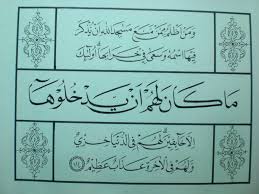 ومن أظلم ممن منع مساجد الله أن يذكر
فيها اسمه وسعى في خرابها أولئك
ما كان لهم أن يدخلوها
إلا خائفين لهم في الدنيا خزي
ولهم في الآخرة عذاب عظيم